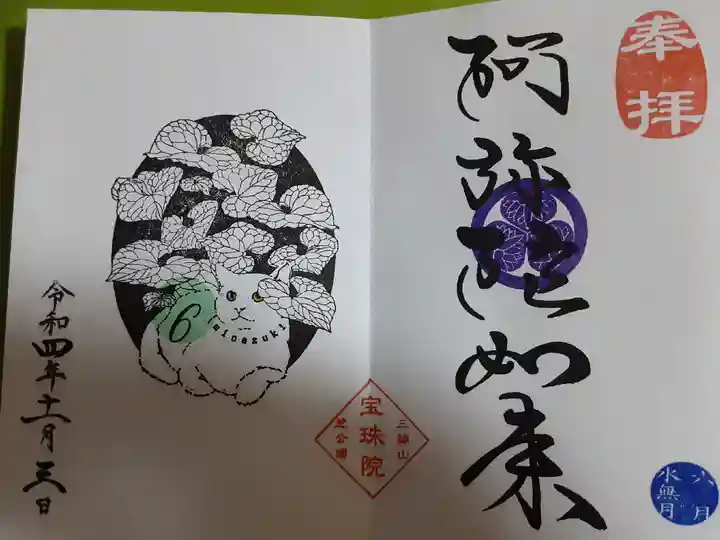 奉拝
阿弥陀如来
六月
水無月
三縁山
宝珠院
芝公園
6
minazuki
令和四年十一月三日